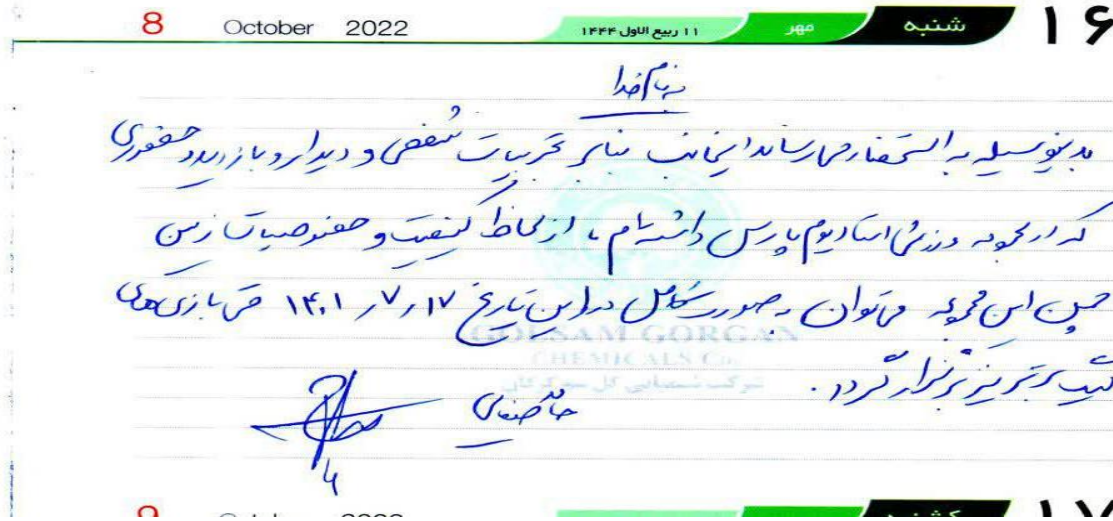 8 October 2022 ۱۱ ربیع الاول ۱۴۴۴ مهر شنبه ۱۶
به نام خدا
بدینوسیله به استحضار میرساند اینجانب بنابر تجربیات شخصی و دیدار و بازدید حضوری
که از مجموعه ورزشی استادیوم پارس داشته‌ام، از لحاظ کیفیت و خصوصیات زمین
چمن این مجموعه می‌توان به صورت کامل در این تاریخ ۱۴۰۱/۷/۱۷ حتی بازی‌های
لیگ برتر نیز برگزار گردد.
GOLSAM GORGAN
CHEMICALS Co.
شرکت شیمیایی گل سم گرگان
9 October 2022 یکشنبه ۱۷